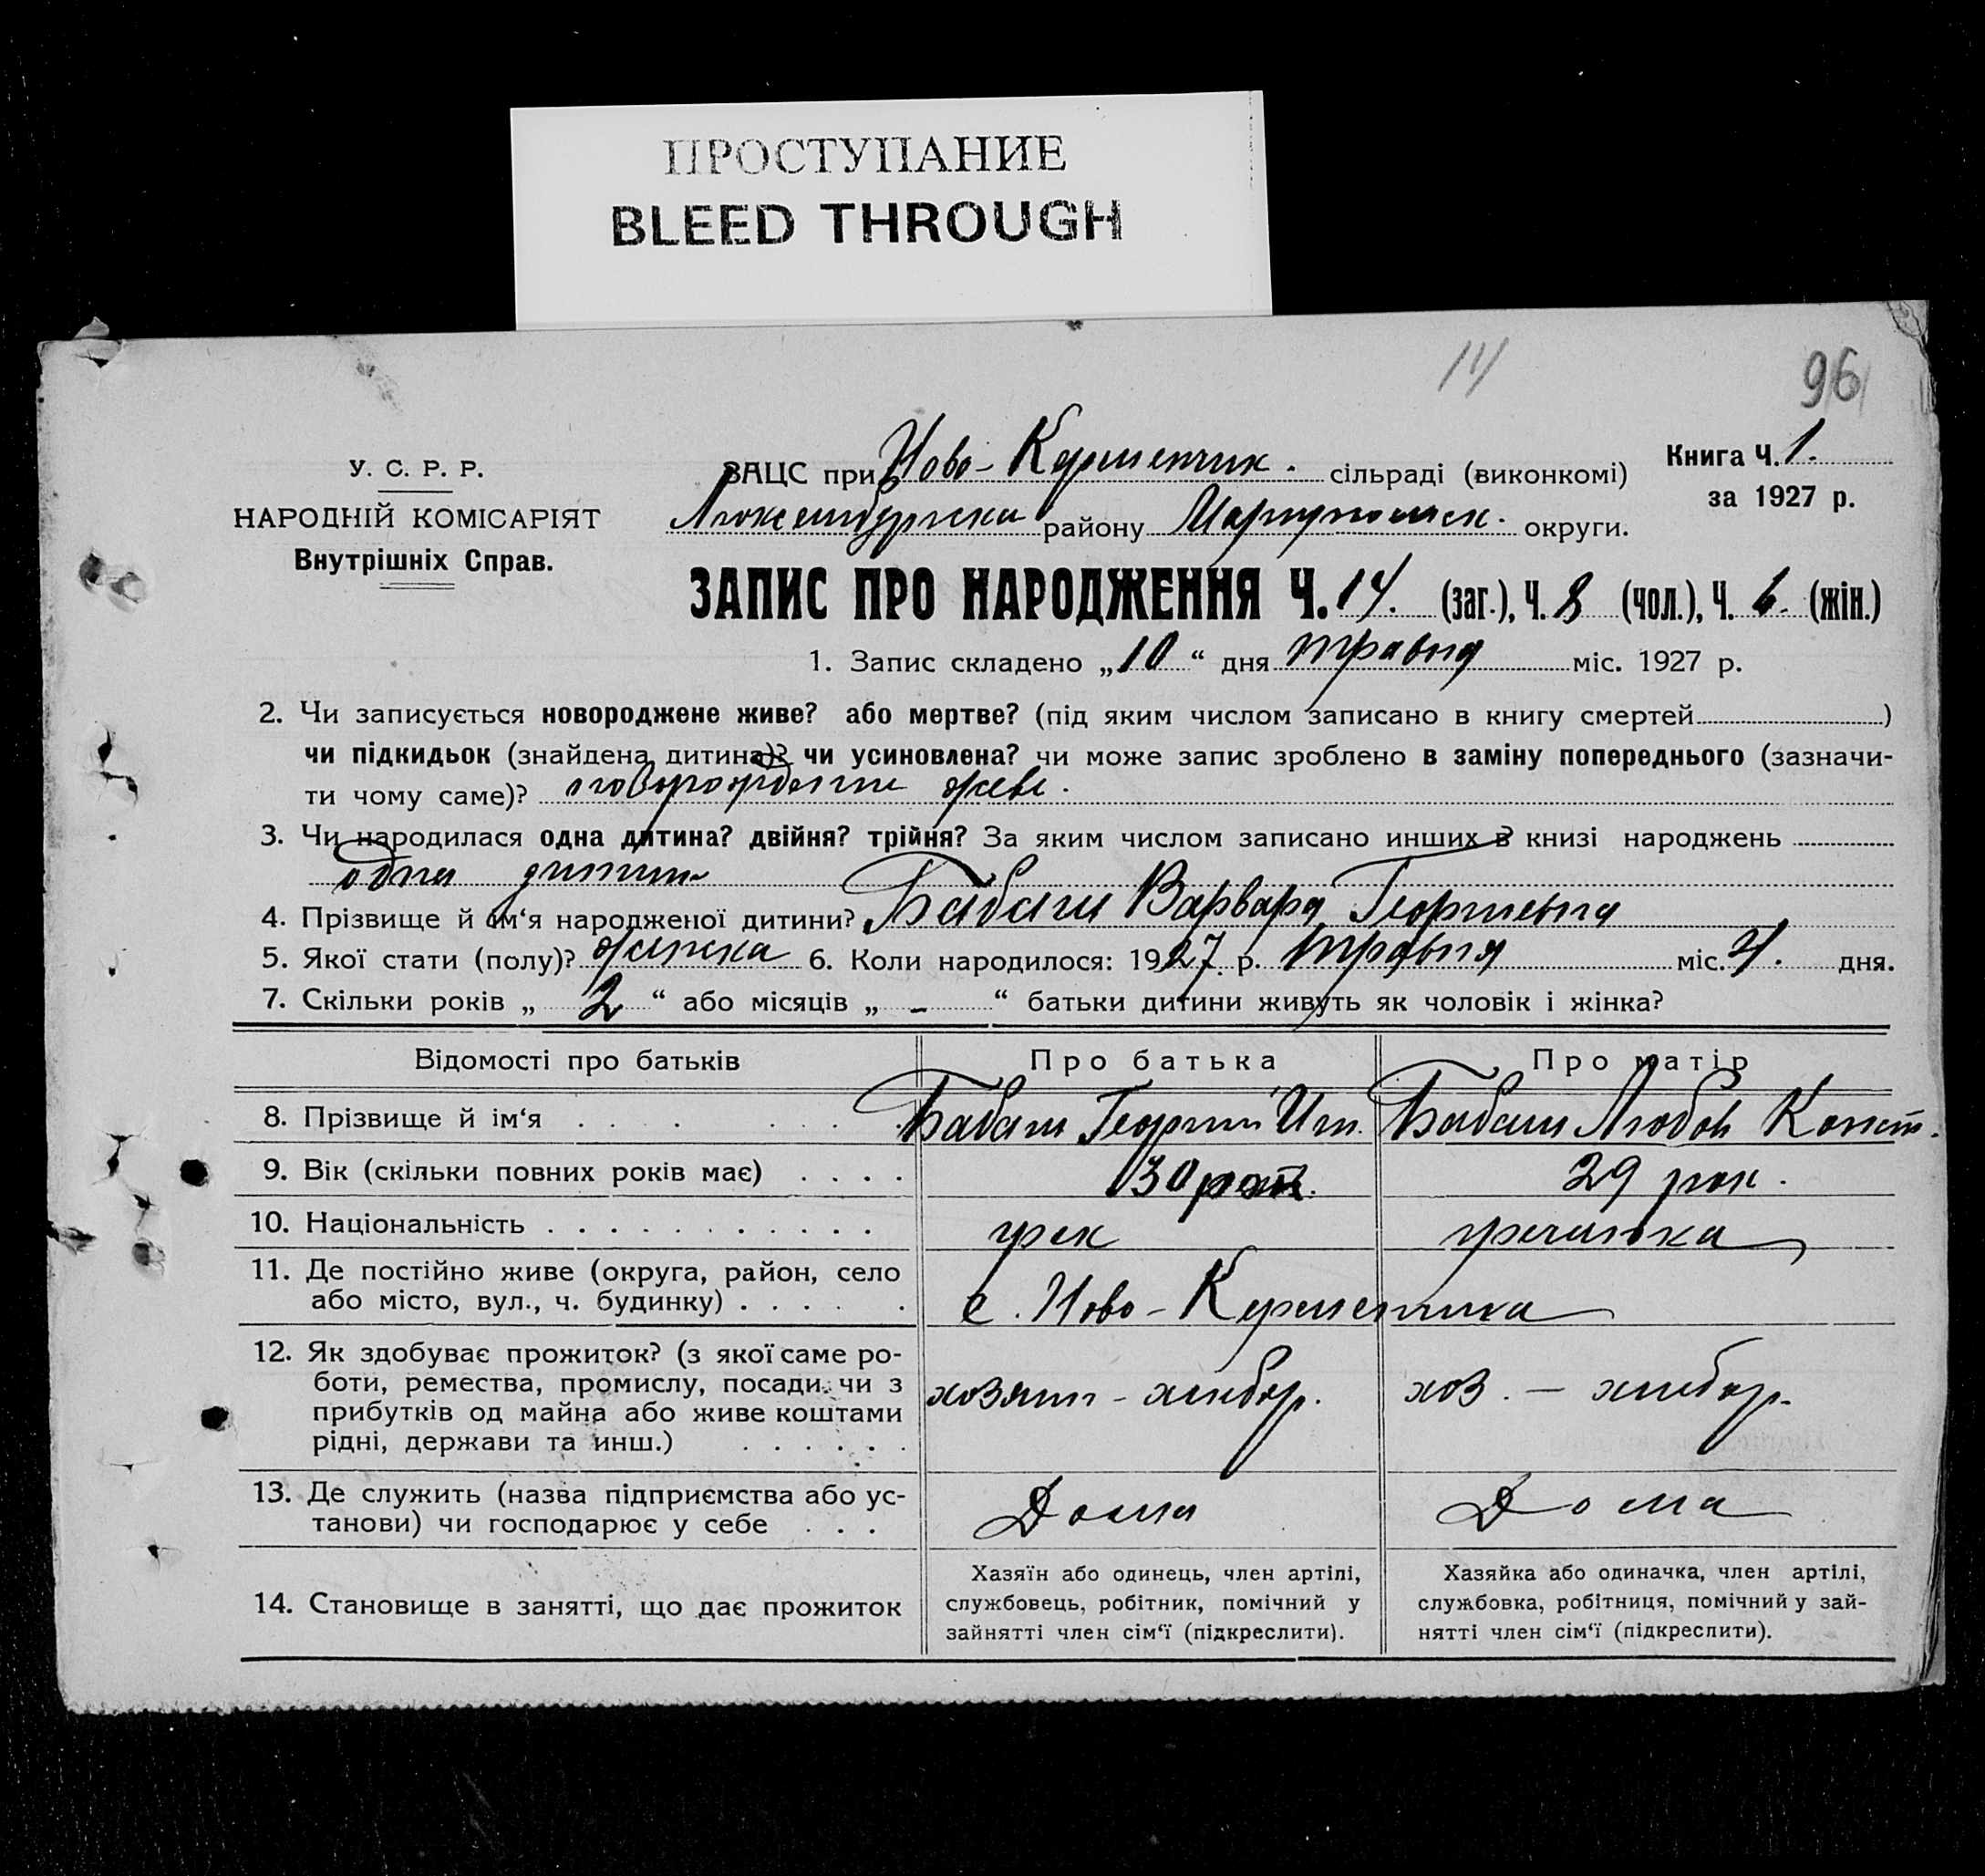 ПРОСТУПАНИЕ
BLEED THROUGH
14 96
У. С. Р. Р.
НАРОДНІЙ КОМІСАРІЯТ
Внутрішніх Справ.
ЗАЦС при Ново-Керменчик. сільраді (виконкомі)
Книга Ч. 1.
за 1927 р.
Люксембурзька району Маріупольск. округи.
ЗАПИС ПРО НАРОДЖЕННЯ Ч. 14. (заг.), Ч. 8 (чол.), Ч. 6. (жін.)
1. Запис складено „10“ дня травня міс. 1927 р.
2. Чи записується новороджене живе? або мертве? (під яким числом записано в книгу смертей )
чи підкидьок (знайдена дитина)? чи усиновлена? чи може запис зроблено в заміну попереднього (зазначи-
ти чому саме)? новорожденне живе.
3. Чи народилася одна дитина? двійня? трійня? За яким числом записано инших в книзі народжень
одна дитина
4. Прізвище й ім‘я народженої дитини? Бабаш Варвара Георгіевна
5. Якої стати (полу)? жінка 6. Коли народилося: 1927 р. травня міс. 4. дня.
7. Скільки років „ 2 “ або місяців „ - “ батьки дитини живуть як чоловік і жінка?
Відомості про батьків Про батька Про матір
8. Прізвище й ім‘я Бабаш Георгий Бабаш Любов Конст.
9. Вік (скільки повних років має) 30 29 рок.
10. Національність грек гречанка
11. Де постійно живе (округа, район, село
або місто, вул., ч. будинку) с. Ново-Керменчика
12. Як здобуває прожиток? (з якої саме ро-
боти, ремества, промислу, посади чи з
прибутків од майна або живе коштами
рідні, держави та инш.)
хозяин - хлибор. хоз. - хлибор.
13. Де служить (назва підприємства або ус-
танови) чи господарює у себе
Дома Дома
14. Становище в занятті, що дає прожиток
Хазяїн або одинець, член артілі,
службовець, робітник, помічний у
зайнятті член сім‘ї (підкреслити).
Хазяйка або одиначка, член артілі,
службовка, робітниця, помічний у зай-
нятті член сім‘ї (підкреслити).